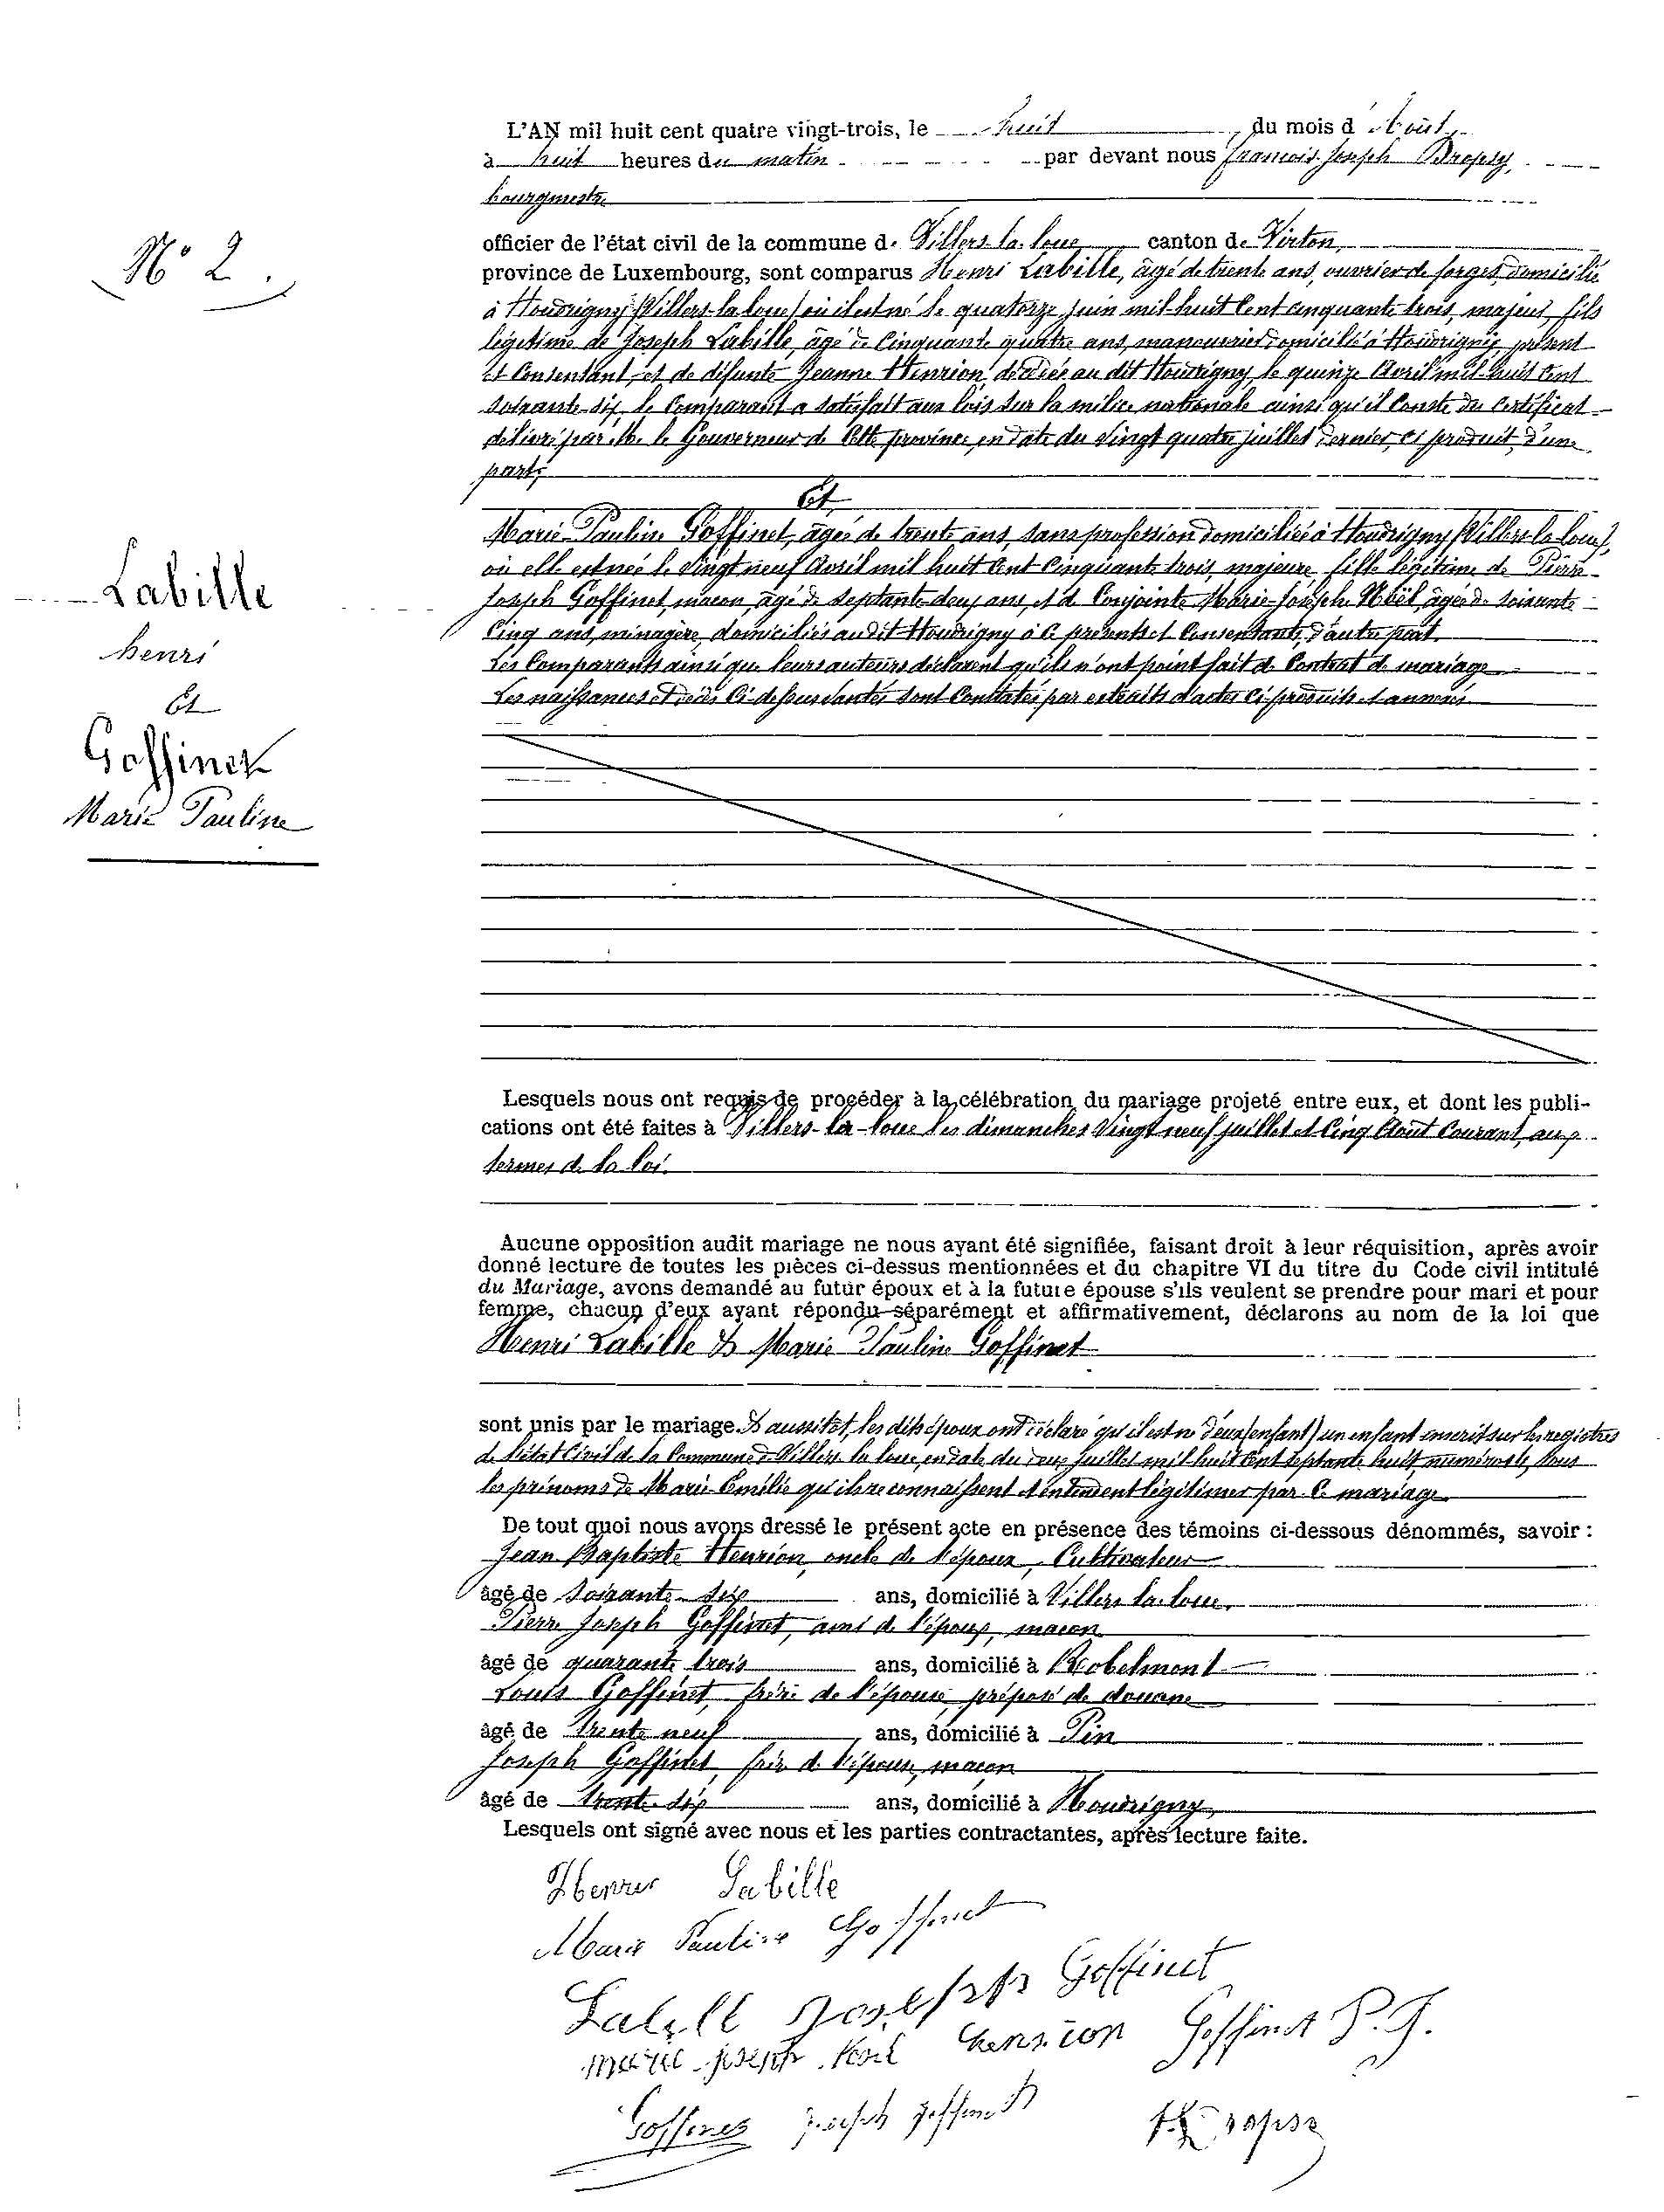 L'AN mil huit cent quatre vingt-trois, le huit du mois d'Août
à huit heures du matin par devant nous François Joseph Dropsy,
bourgmestre
officier de l'état civil de la commune de Villers-la-loue canton de Virton,
province de Luxembourg, sont comparus Henri Labille, âgé de trente ans, ouvrier de forges, domicilié
à Houdrigny (Villers-la-loue) où il est né le quatorze juin mil-huit Cent Cinquante trois, majeur, fils
légitime de Joseph Labille, âgé de Cinquante quatre ans, manouvrier domicilié à Houdrigny, présent
et Consentant, et de défunte Jeanne Henrion, décédée au dit Houdrigny, le quinze Avril mil-huit Cent
soixante-six, le Comparant a satisfait aux lois sur la milice nationale ainsi qu'il Conste du Certificat
délivré par M. le Gouverneur de Cette province, en date du Vingt quatre juillet dernier, ci produit, d'une
part;
Et
Marie-Pauline Goffinet, âgée de trente ans, sans profession domiciliée à Houdrigny (Villers-la-loue),
où elle est née le Vingt neuf Avril mil huit Cent Cinquante trois, majeure, fille légitime de Pierre
Joseph Goffinet, maçon, âgé de septante-deux ans, et de Conjointe Marie-Joseph Noël, âgée de soixante
Cinq ans, ménagère, domiciliés audit Houdrigny à Ce présents et Consentants, d'autre part.
Les Comparants ainsi que leurs auteurs déclarent qu'ils n'ont point fait de Contrat de mariage
Les naissances et décès Ci-dessus vantés sont Constatés par extraits d'actes Ci-produits et annexés
N° 2.
Labille
henri
Et
Goffinet
Marie Pauline
Lesquels nous ont requis de procéder à la célébration du mariage projeté entre eux, et dont les publi-
cations ont été faites à Villers-la-loue les dimanches Vingt neuf juillet et Cinq Août Courant, aux
termes de la loi.
Aucune opposition audit mariage ne nous ayant été signifiée, faisant droit à leur réquisition, après avoir
donné lecture de toutes les pièces ci-dessus mentionnées et du chapitre VI du titre du Code civil intitulé
du Mariage, avons demandé au futur époux et à la future épouse s'ils veulent se prendre pour mari et pour
femme, chacun d'eux ayant répondu séparément et affirmativement, déclarons au nom de la loi que
Henri Labille & Marie Pauline Goffinet
sont unis par le mariage. & aussitôt, les dits époux ont déclaré qu'il est né d'eux (enfant) un enfant inscrit sur les registres
de l'état Civil de la Commune de Villers-la-loue, en date du deux juillet mil huit Cent septante huit, sous
les prénoms de Marie-Emélie qu'ils reconnaissent et entendent légitimer par Ce mariage.
De tout quoi nous avons dressé le présent acte en présence des témoins ci-dessous dénommés, savoir :
Jean Baptiste Henrion, oncle de l'époux, Cultivateur
âgé de soixante-six ans, domicilié à Villers-la-loue.
Pierre Joseph Goffinet, ami de l'époux, maçon
âgé de quarante trois ans, domicilié à Robelmont
Louis Goffinet, frère de l'épouse, préposé de douane
âgé de trente neuf ans, domicilié à Pin
Joseph Goffinet, frère de l'épouse, maçon
âgé de trente-six ans, domicilié à Houdrigny,
Lesquels ont signé avec nous et les parties contractantes, après lecture faite.
Henri Labille
Marie Pauline Goffinet
Labille Joseph Goffinet
marie joseph Noel henrion Goffinet P. J.
Goffinet joseph goffinet F. Dropsy